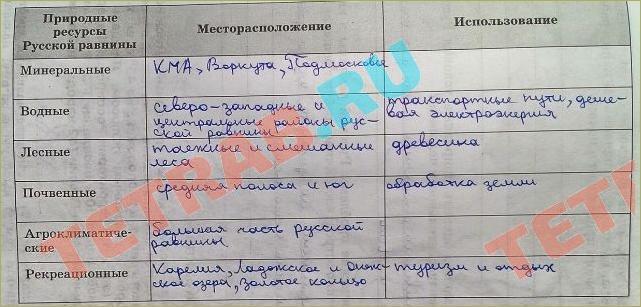 Природные
ресурсы
Русской равнины
Месторасположение
Использование
Минеральные
КМА, Воркута, Подмосковье
Водные
северо-западные и
центральные районы рус-
ской равнины
транспортные пути, деше-
вая электроэнергия
Лесные
таежные и смешанные
леса
древесина
Почвенные
средняя полоса и юг
обработка земли
Агроклиматиче-
ские
большая часть русской
равнины
Рекреационные
Карелия, Ладожское и Онеж-
ское озера, Золотое кольцо
туризм и отдых
TETRAB.RU
TETR